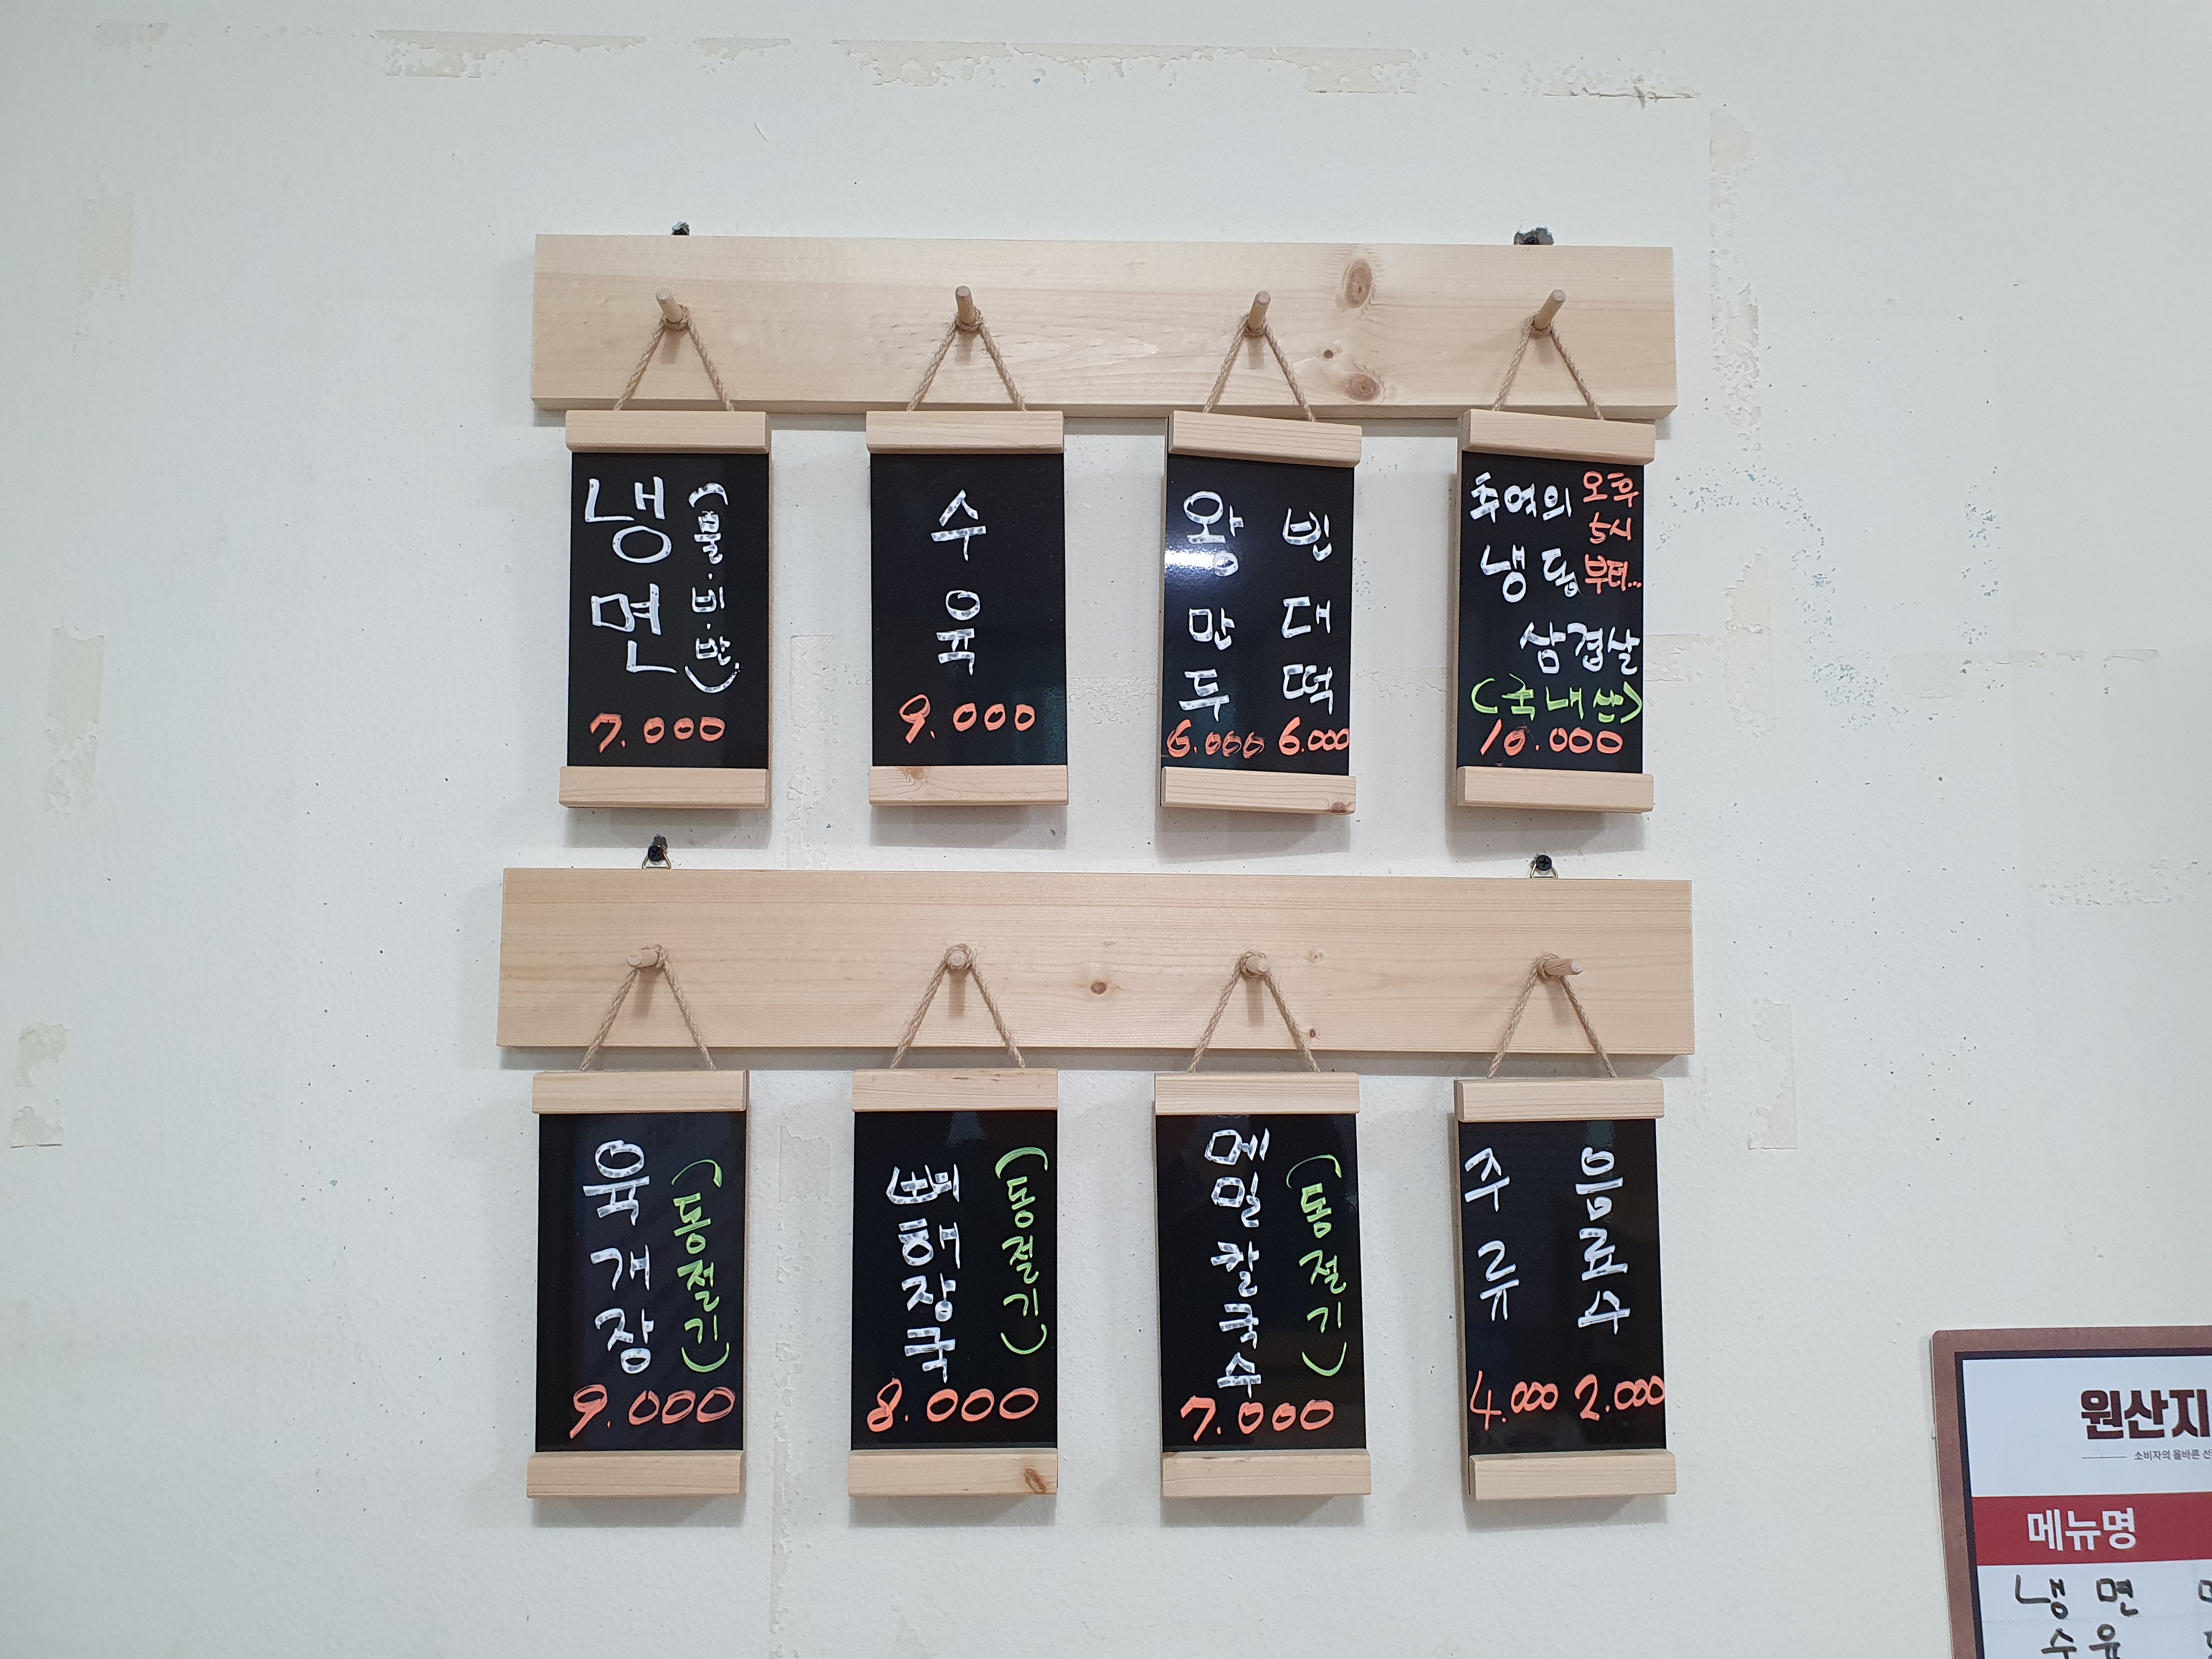 냉면
(물.비.반)
7.000
수육
9.000
왕만두
6.000
빈대떡
6.000
추억의
냉동
삼겹살
오후
5시
부터...
(국내산)
10.000
육개장
(동절기)
9.000
뼈해장국
(동절기)
8.000
메밀칼국수
(동절기)
7.000
주류
4.000
음료수
2.000
원산지
소비자의 올바른
메뉴명
냉면
수육